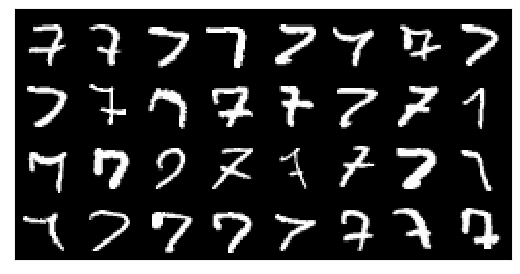 7 7 7 7 7 7 7 7
7 7 7 7 7 7 7
7 7 7 7 7 7 7
7 7 7 7 7 7 7 7